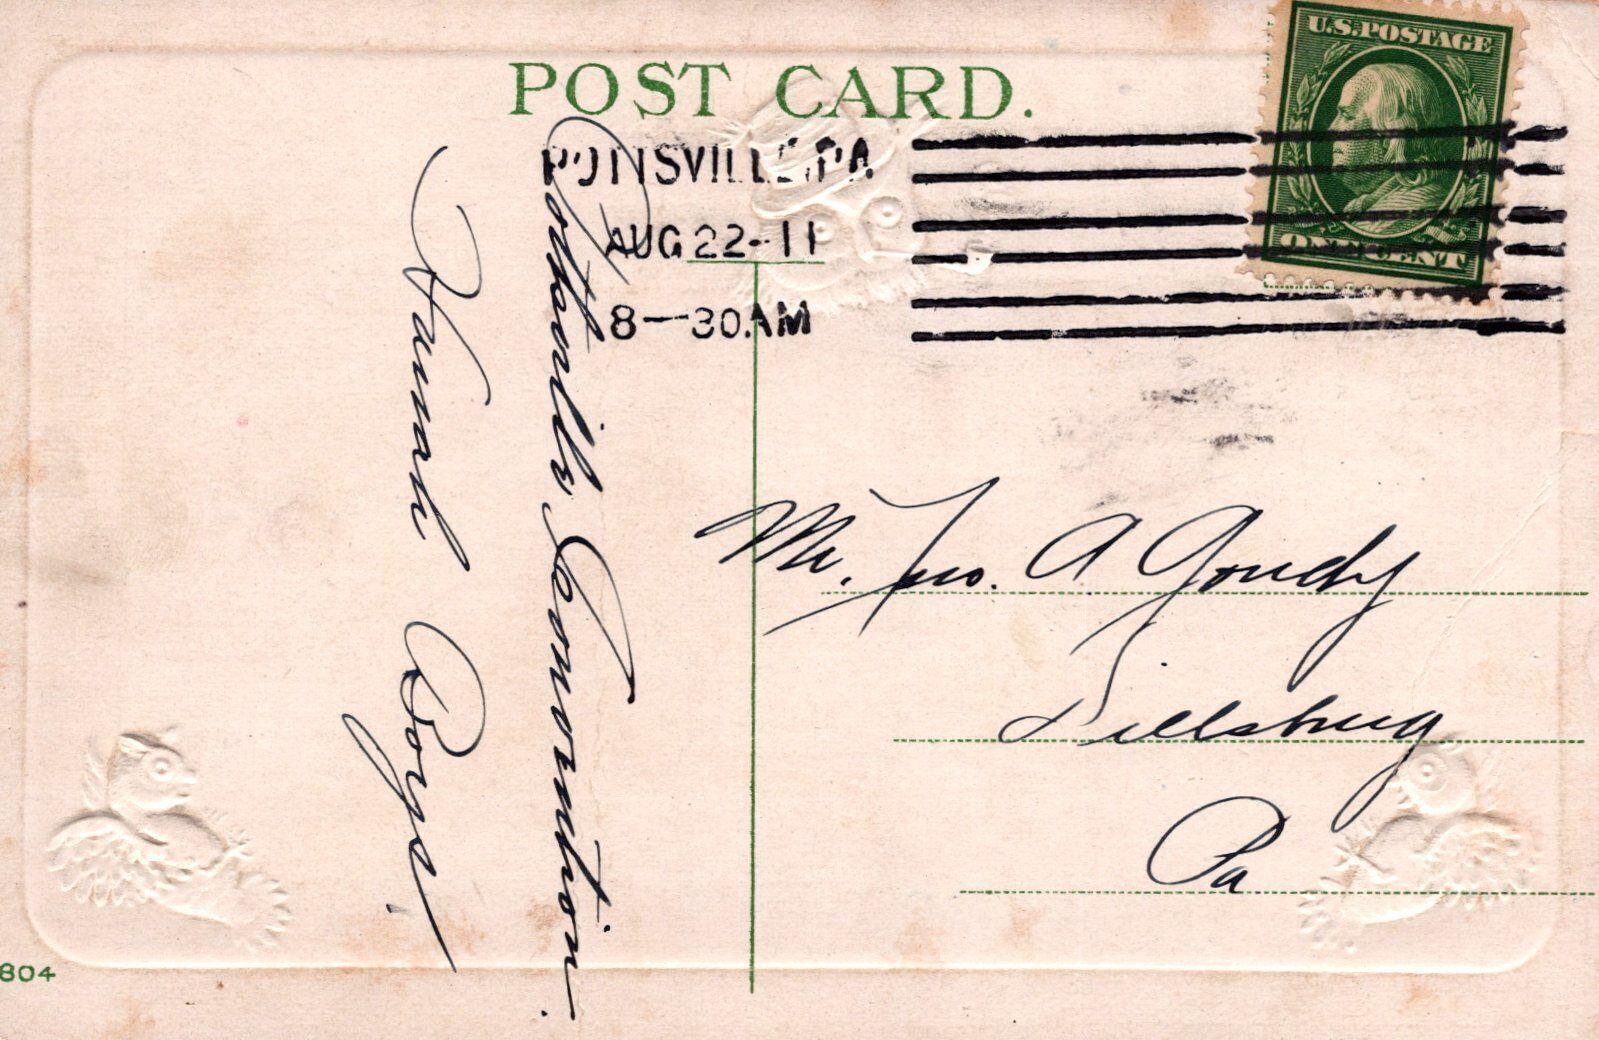 POST CARD.
U.S. POSTAGE
ONE CENT
POTTSVILLE, PA
AUG 22-11
8-30 AM
Pottsville Convention.
Mr. Jno. A Goudy
Dillsburg
Pa
804